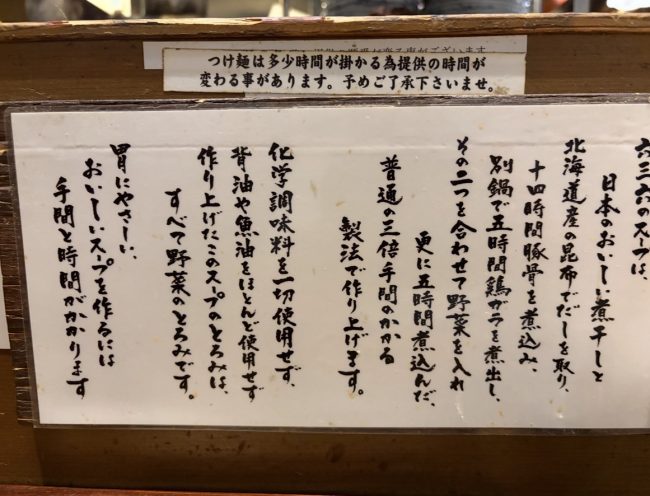 つけ麺は多少時間が掛かる為提供の時間が
変わる事があります。予めご了承下さいませ。
六三六のスープは、
日本のおいしい煮干しと
北海道産の昆布でだしを取り、
十四時間豚骨を煮込み、
別鍋で五時間鶏ガラを煮出し、
その二つを合わせて野菜を入れ
更に五時間煮込んだ、
普通の三倍手間のかかる
製法で作り上げます。
化学調味料を一切使用せず、
背油や魚油をほとんど使用せず
作り上げたこのスープのとろみは、
すべて野菜のとろみです。
胃にやさしい、
おいしいスープを作るには
手間と時間がかかります